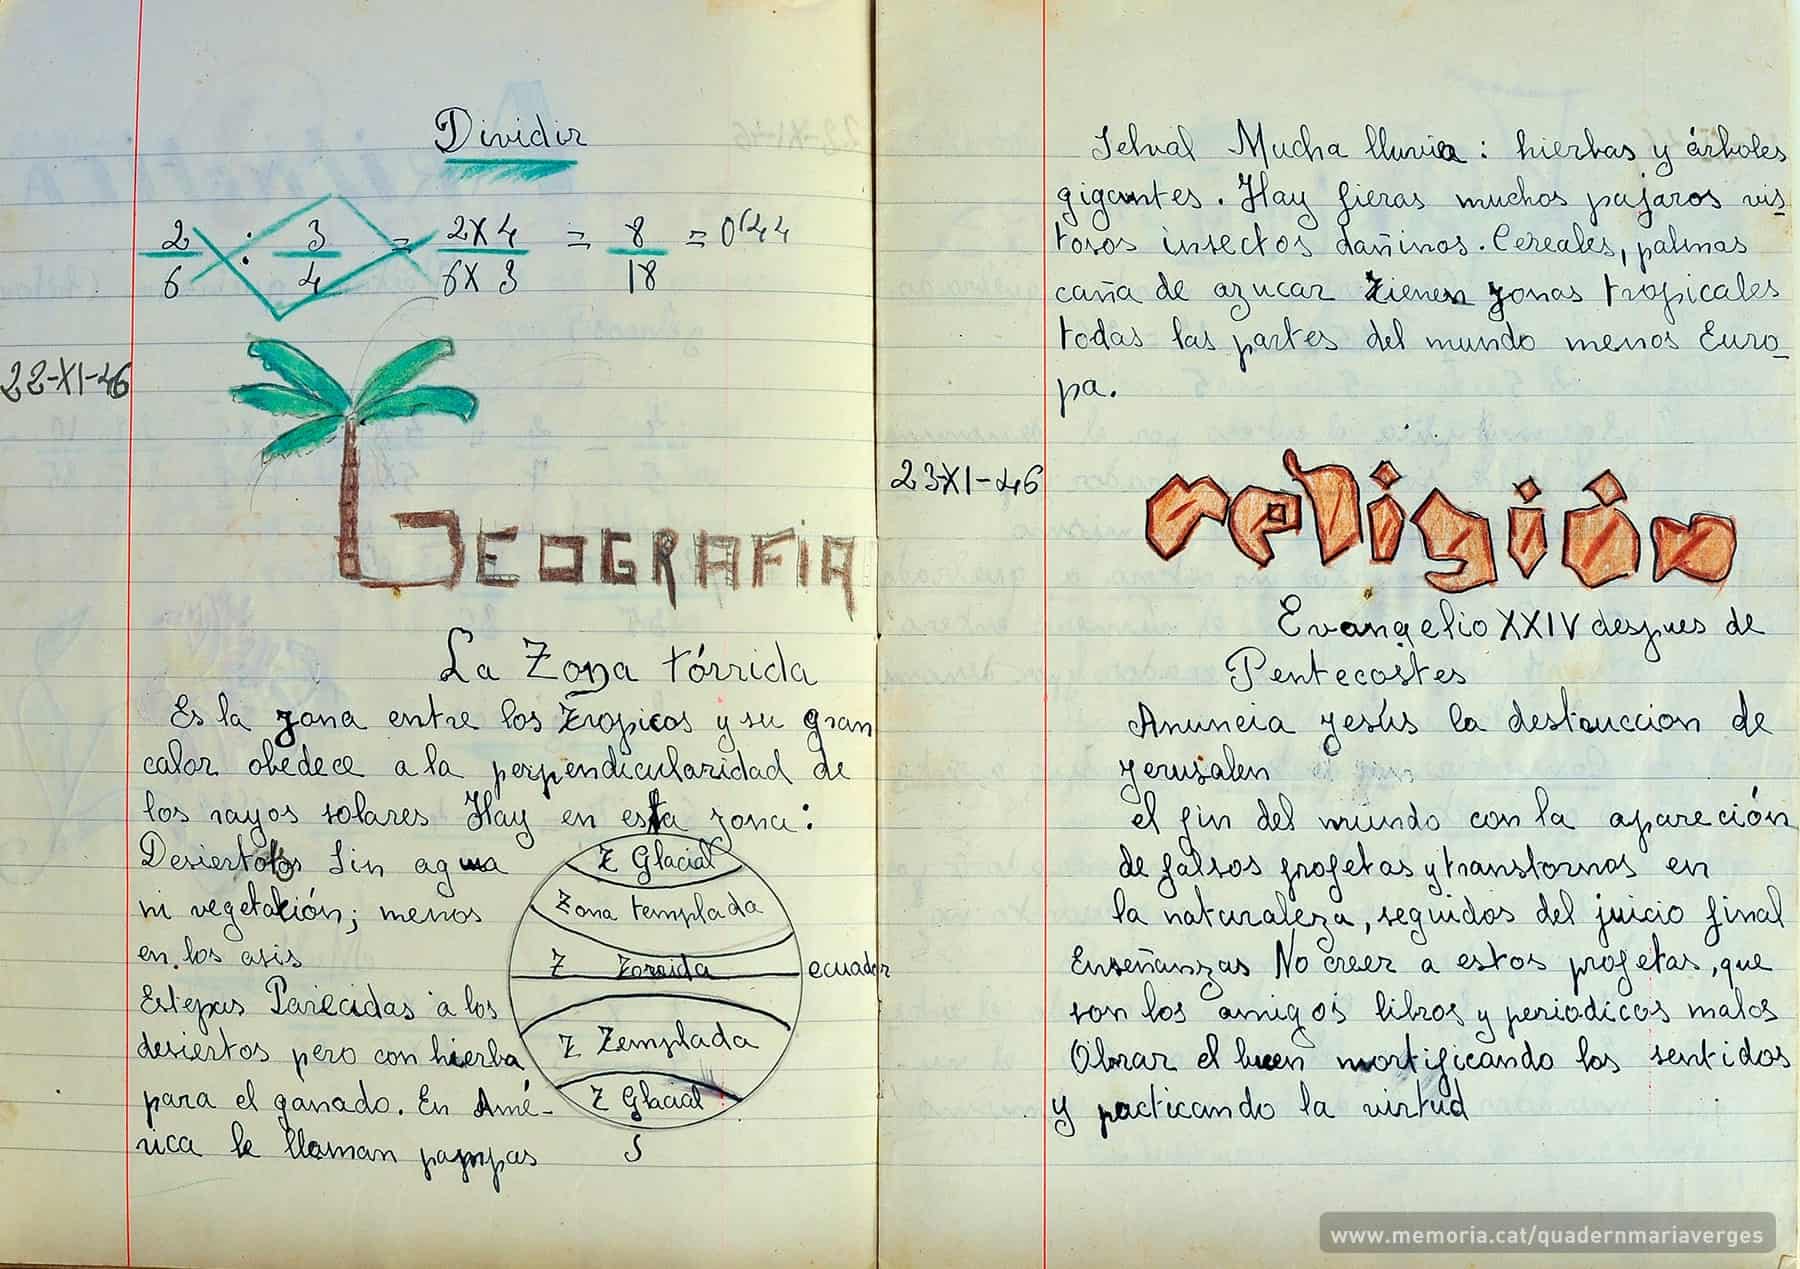 Dividir
2/6 : 3/4 = 2x4/6x3 = 8/18 = 0'44
22-XI-46
GEOGRAFIA
La Zona tórrida
Es la zona entre los Tropicos y su gran
calor obedece a la perpendicularidad de
los rayos solares Hay en esta zona:
Desiertos Sin agua
ni vegetación; menos
en los asis
Estepas Parecidas a los
desiertos pero con hierba
para el ganado. En Amé-
rica le llaman pampas
Z Glacial
Zona templada
Z Torrida
ecuador
Z Templada
Z Glacial
S
Selval Mucha lluvia: hierbas y árboles
gigantes. Hay fieras muchos pajaros vis-
tosos insectos dañinos. Cereales, palmas
caña de azucar Tienen zonas tropicales
todas las partes del mundo menos Euro-
pa.
23-XI-46
religión
Evangelio XXIV despues de
Pentecostes
Anuncia Jesús la destruccion de
Jerusalen
el fin del mundo con la apareción
de falsos profetas y transtornos en
la naturaleza, seguidos del juicio final
Enseñanzas No creer a estos profetas, que
son los amigos libros y periodicos malos
Obrar el buen mortificando los sentidos
y practicando la virtud
www.memoria.cat/quadernmariaverges